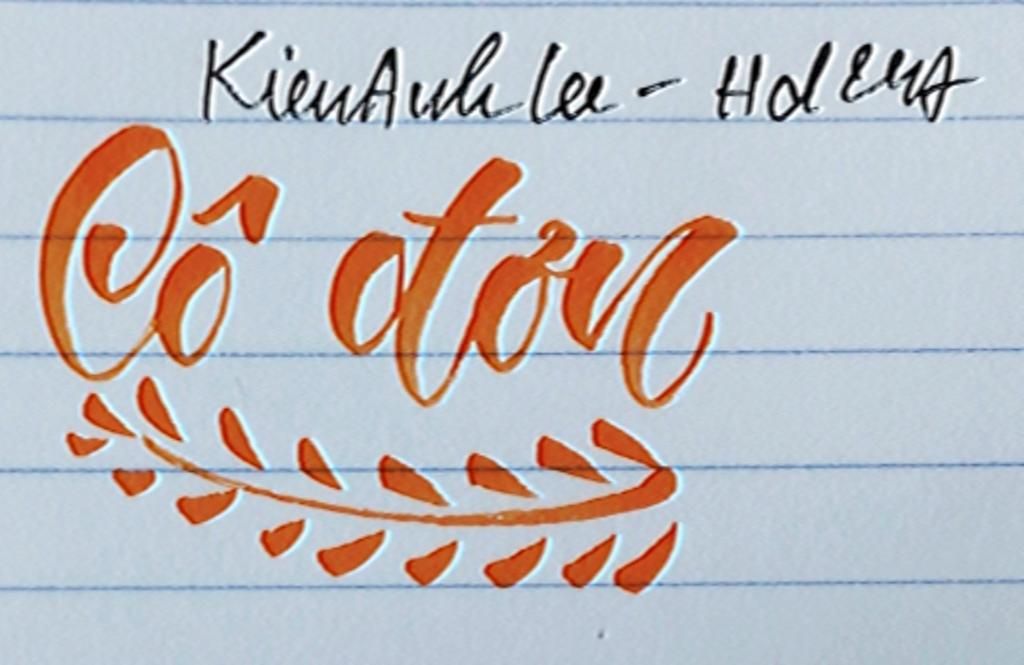 KienAnh Lee -
Cô đơn